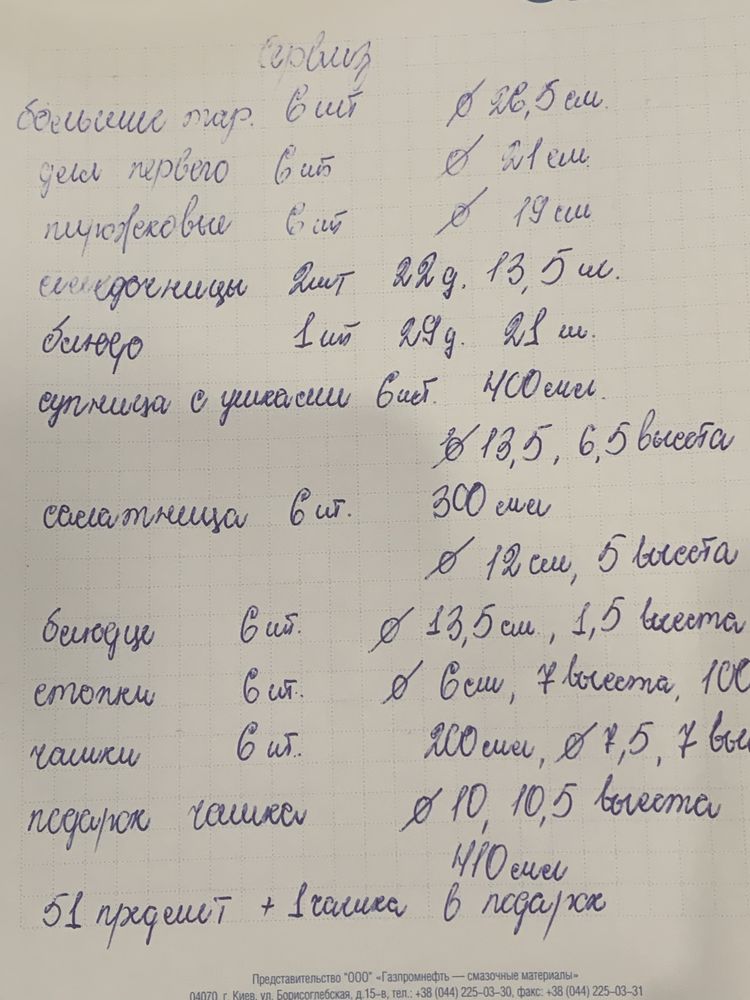 сервиз
большие тар. 6 шт ⌀ 26,5 см.
для первого 6 шт ⌀ 21 см
пирожковые 6 шт ⌀ 19 см
селедочницы 2 шт 22 д. 13,5 ш.
блюдо 1 шт 29 д. 21 ш.
супница с ушками 6 шт. 400 мл.
⌀ 13,5, 6,5 высота
салатница 6 шт. 300 мл
⌀ 12 см, 5 высота
блюдце 6 шт. ⌀ 13,5 см, 1,5 высота
стопки 6 шт. ⌀ 6 см, 7 высота, 100
чашки 6 шт. 200 мл, ⌀ 7,5, 7 выс
подарок чашка ⌀ 10, 10,5 высота
410 мл
51 предмет + 1 чашка в подарок
Представительство "ООО" «Газпромнефть — смазочные материалы»
04070, г. Киев, ул. Борисоглебская, д.15–в, тел.: +38 (044) 225–03–30, факс: +38 (044) 225–03–31